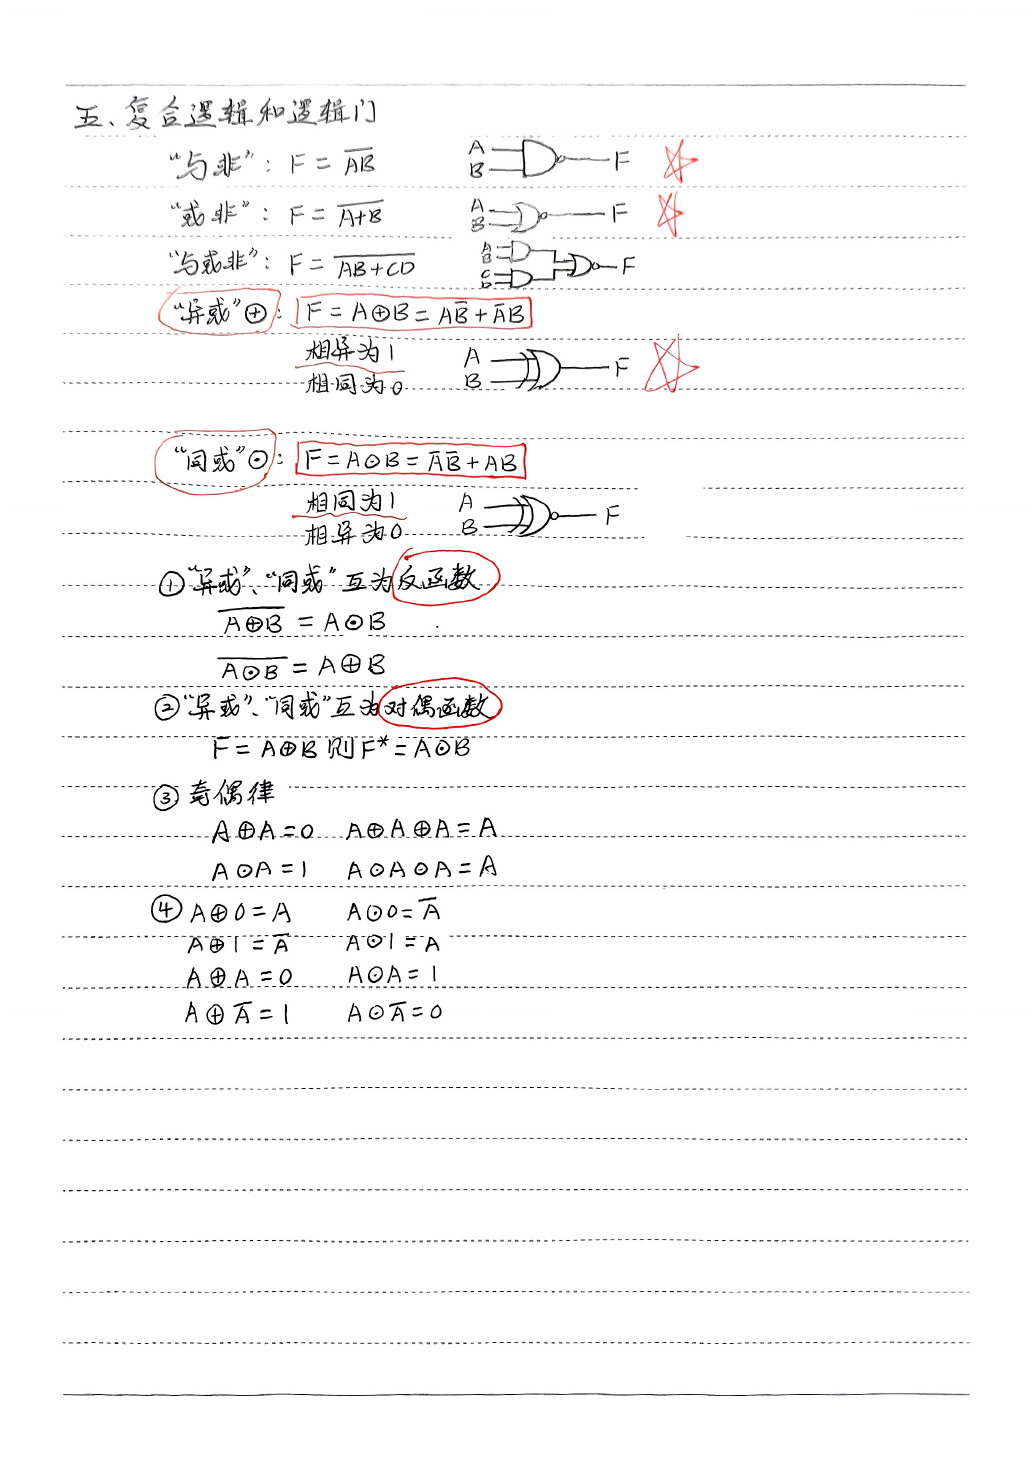 五、复合逻辑和逻辑门
“与非”: F = \overline{AB} A B F
“或非”: F = \overline{A+B} A B F
“与或非”: F = \overline{AB+CD} A B C D F
“异或”⊕: F = A⊕B = A\overline{B} + \overline{A}B
相异为1 A B F
相同为0
“同或”⊙: F = A⊙B = \overline{A}\,\overline{B} + AB
相同为1 A B F
相异为0
①“异或”、“同或”互为反函数
\overline{A⊕B} = A⊙B
\overline{A⊙B} = A⊕B
②“异或”、“同或”互为对偶函数
F = A⊕B 则 F* = A⊙B
③ 奇偶律
A⊕A = 0 A⊕A⊕A = A
A⊙A = 1 A⊙A⊙A = A
④ A⊕0 = A A⊙0 = \overline{A}
A⊕1 = \overline{A} A⊙1 = A
A⊕A = 0 A⊙A = 1
A⊕\overline{A} = 1 A⊙\overline{A} = 0